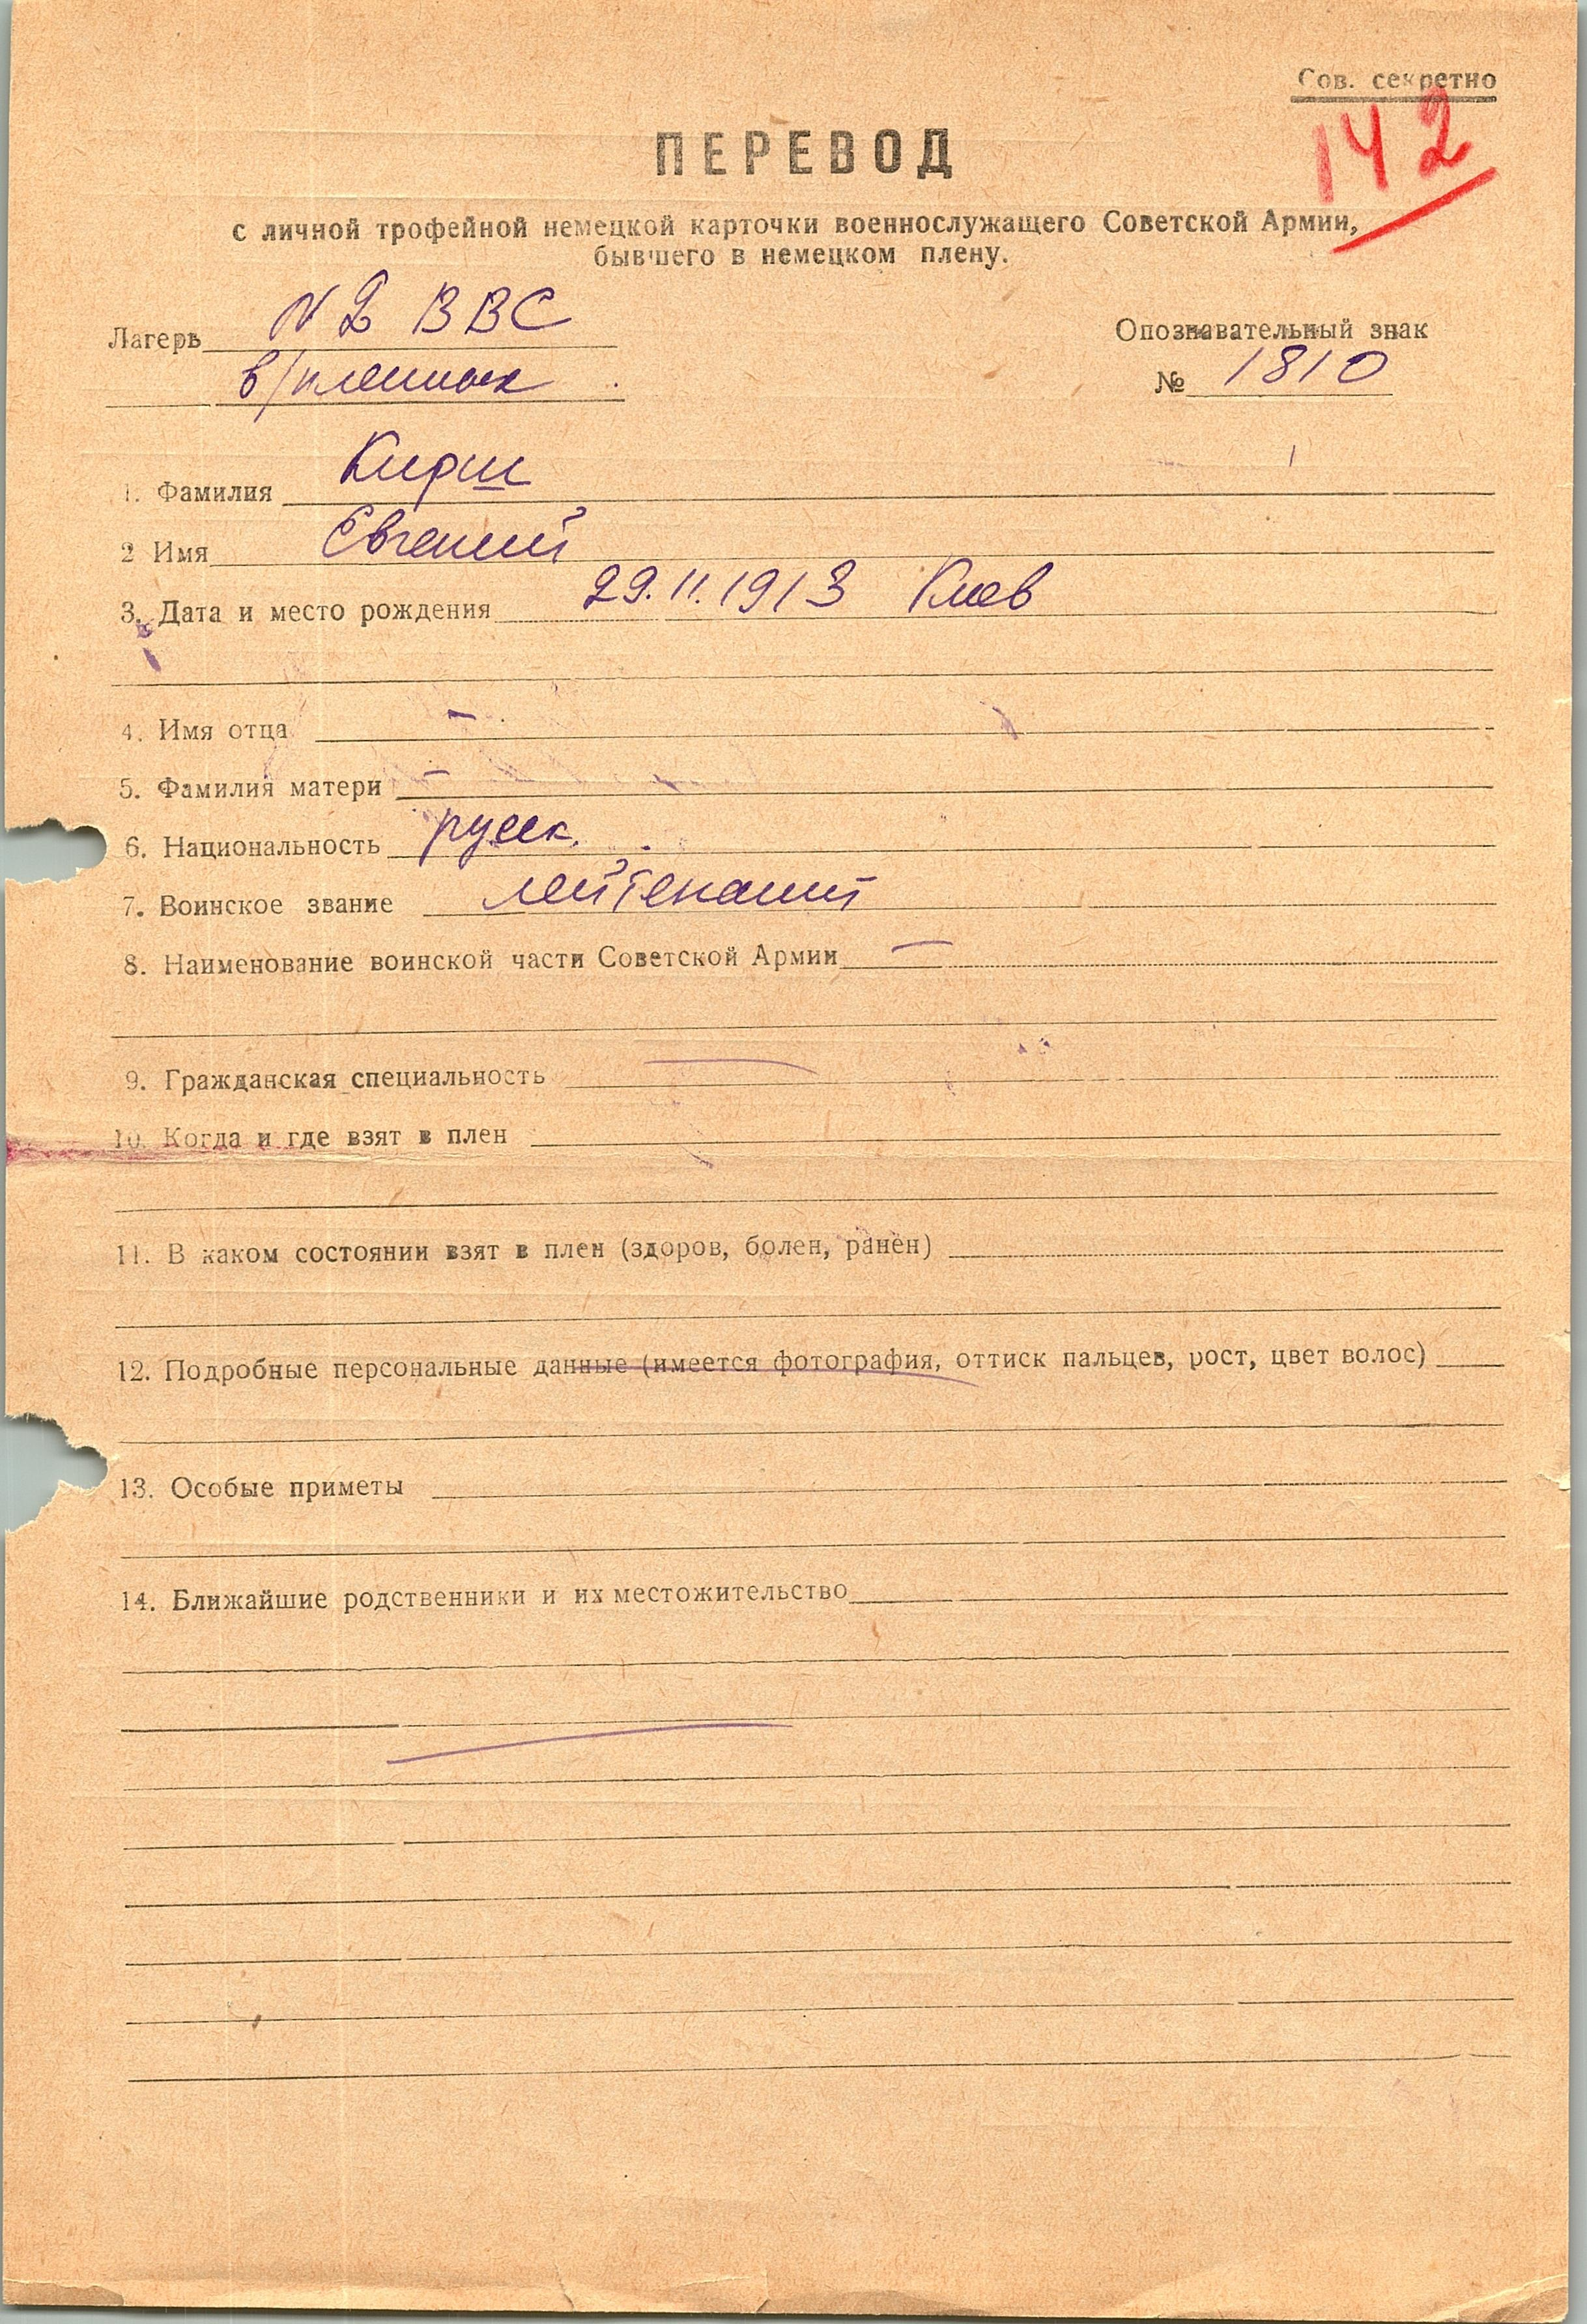 Сов. секретно
142
ПЕРЕВОД
с личной трофейной немецкой карточки военнослужащего Советской Армии,
бывшего в немецком плену.
Лагерь N 2 ВВС
в/пленных
Опознавательный знак
№ 1810
1. Фамилия Кирш
2 Имя Евгений
3. Дата и место рождения 29.11.1913 Киев
4. Имя отца –
5. Фамилия матери –
6. Национальность русск.
7. Воинское звание лейтенант
8. Наименование воинской части Советской Армии –
9. Гражданская специальность –
10. Когда и где взят в плен
11. В каком состоянии взят в плен (здоров, болен, ранен)
12. Подробные персональные данные (имеется фотография, оттиск пальцев, рост, цвет волос)
13. Особые приметы
14. Ближайшие родственники и их местожительство